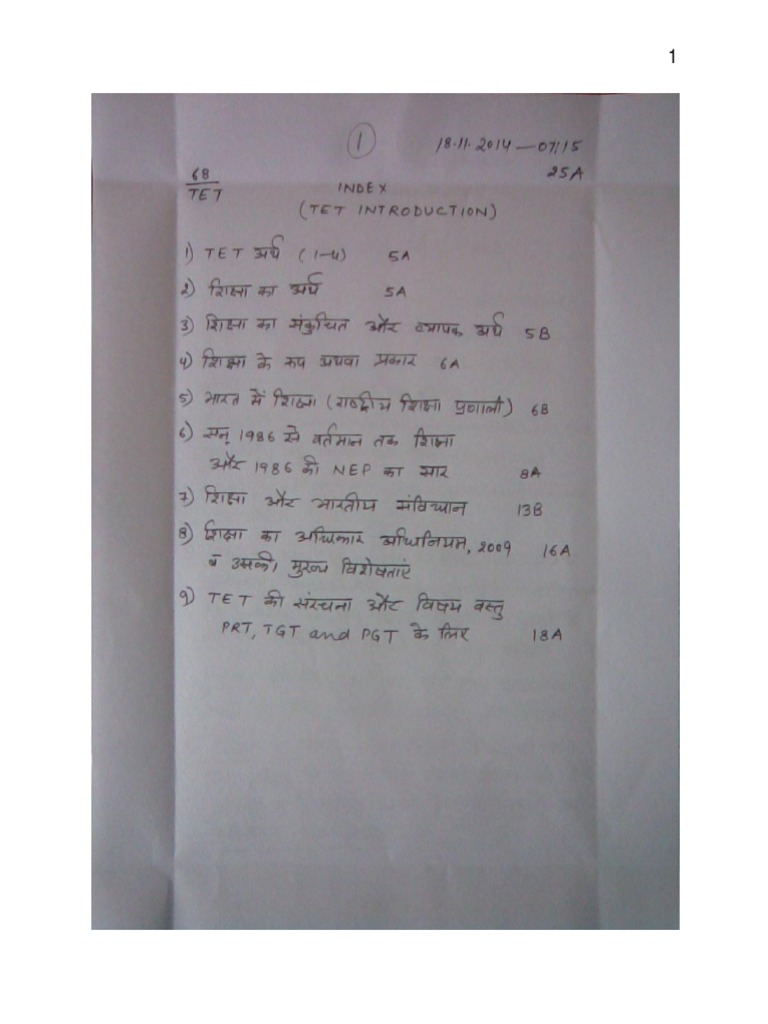 1
1
18.11.2014 — 07:15
68
TET
25A
INDEX
(TET INTRODUCTION)
1) TET अर्थ (1-4) 5A
2) शिक्षा का अर्थ 5A
3) शिक्षा का संकुचित और व्यापक अर्थ 5B
4) शिक्षा के रूप अथवा प्रकार 6A
5) भारत में शिक्षा (राष्ट्रीय शिक्षा प्रणाली) 6B
6) सन् 1986 से वर्तमान तक शिक्षा
और 1986 की NEP का सार 8A
7) शिक्षा और भारतीय संविधान 13B
8) शिक्षा का अधिकार अधिनियम, 2009 16A
व उसकी मुख्य विशेषताएं
9) TET की संरचना और विषय वस्तु
PRT, TGT and PGT के लिए 18A